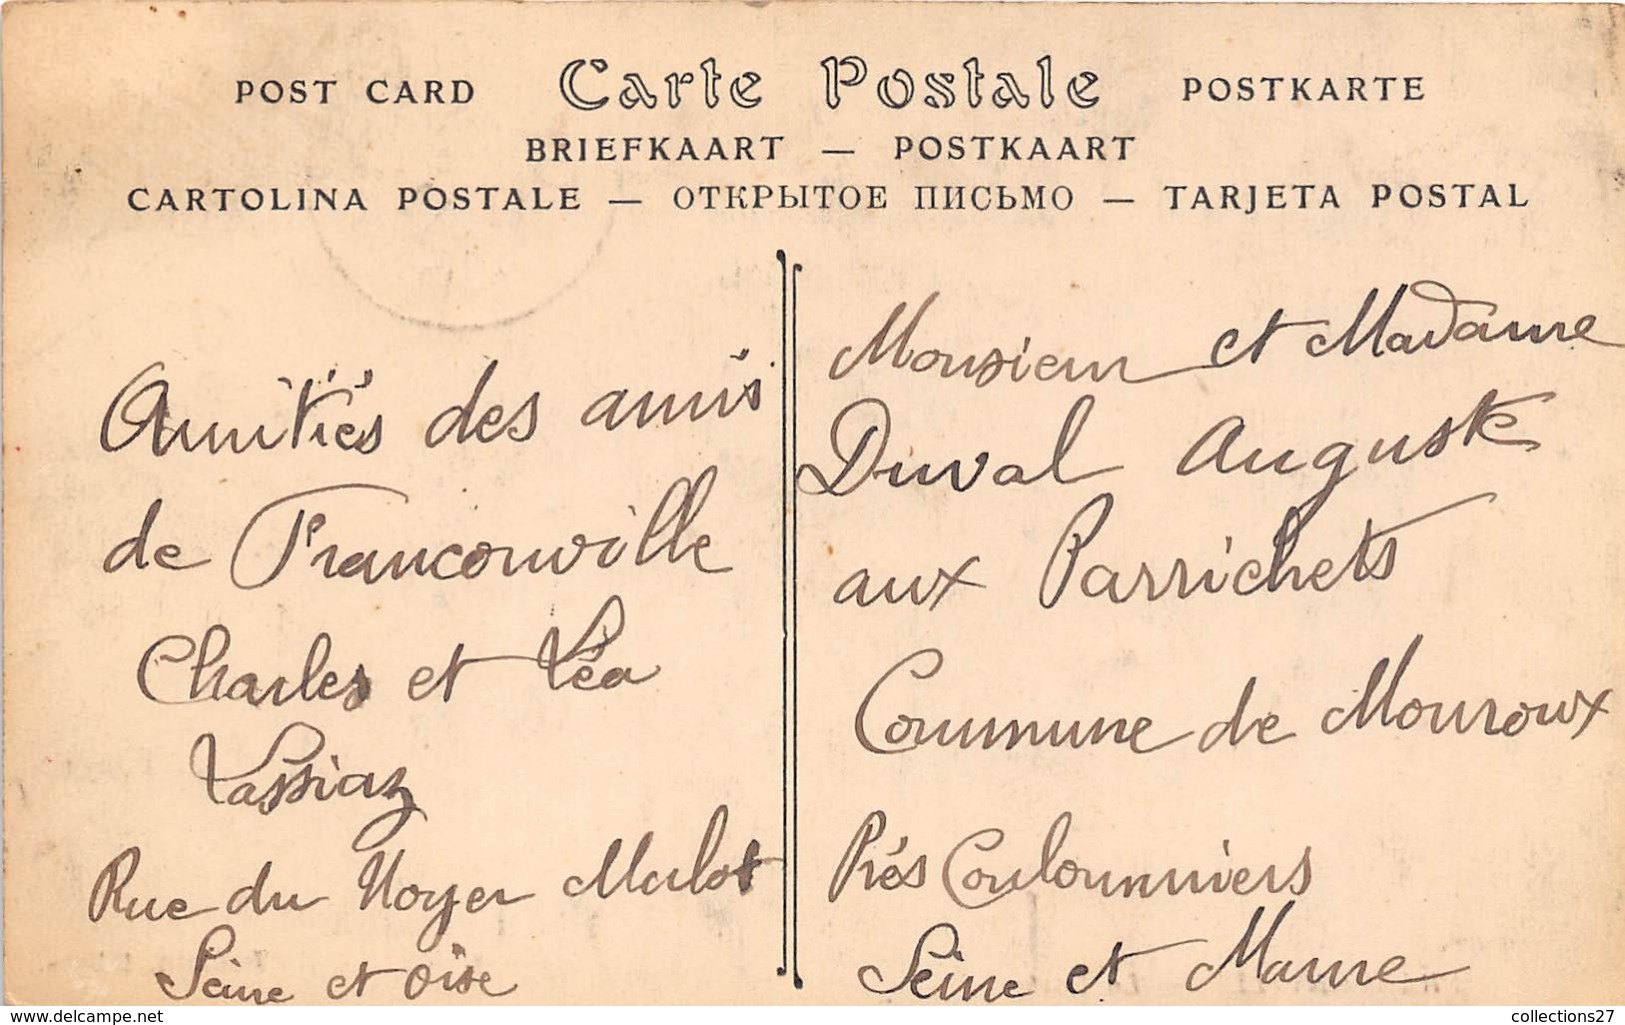 POST CARD Carte Postale POSTKARTE
BRIEFKAART — POSTKAART
CARTOLINA POSTALE — ОТКРЫТОЕ ПИСЬМО — TARJETA POSTAL
Amitiés des amis
de Franconville
Charles et Léa
Lassiaz
Rue du Noyer Mulot
Seine et Oise
Monsieur et Madame
Duval Auguste
aux Parrichets
Commune de Mouroux
Près Coulommiers
Seine et Marne
www.delcampe.net
collections27